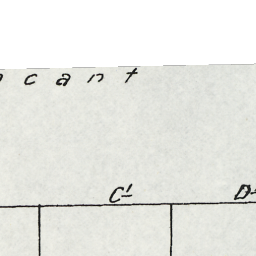 cant
C'